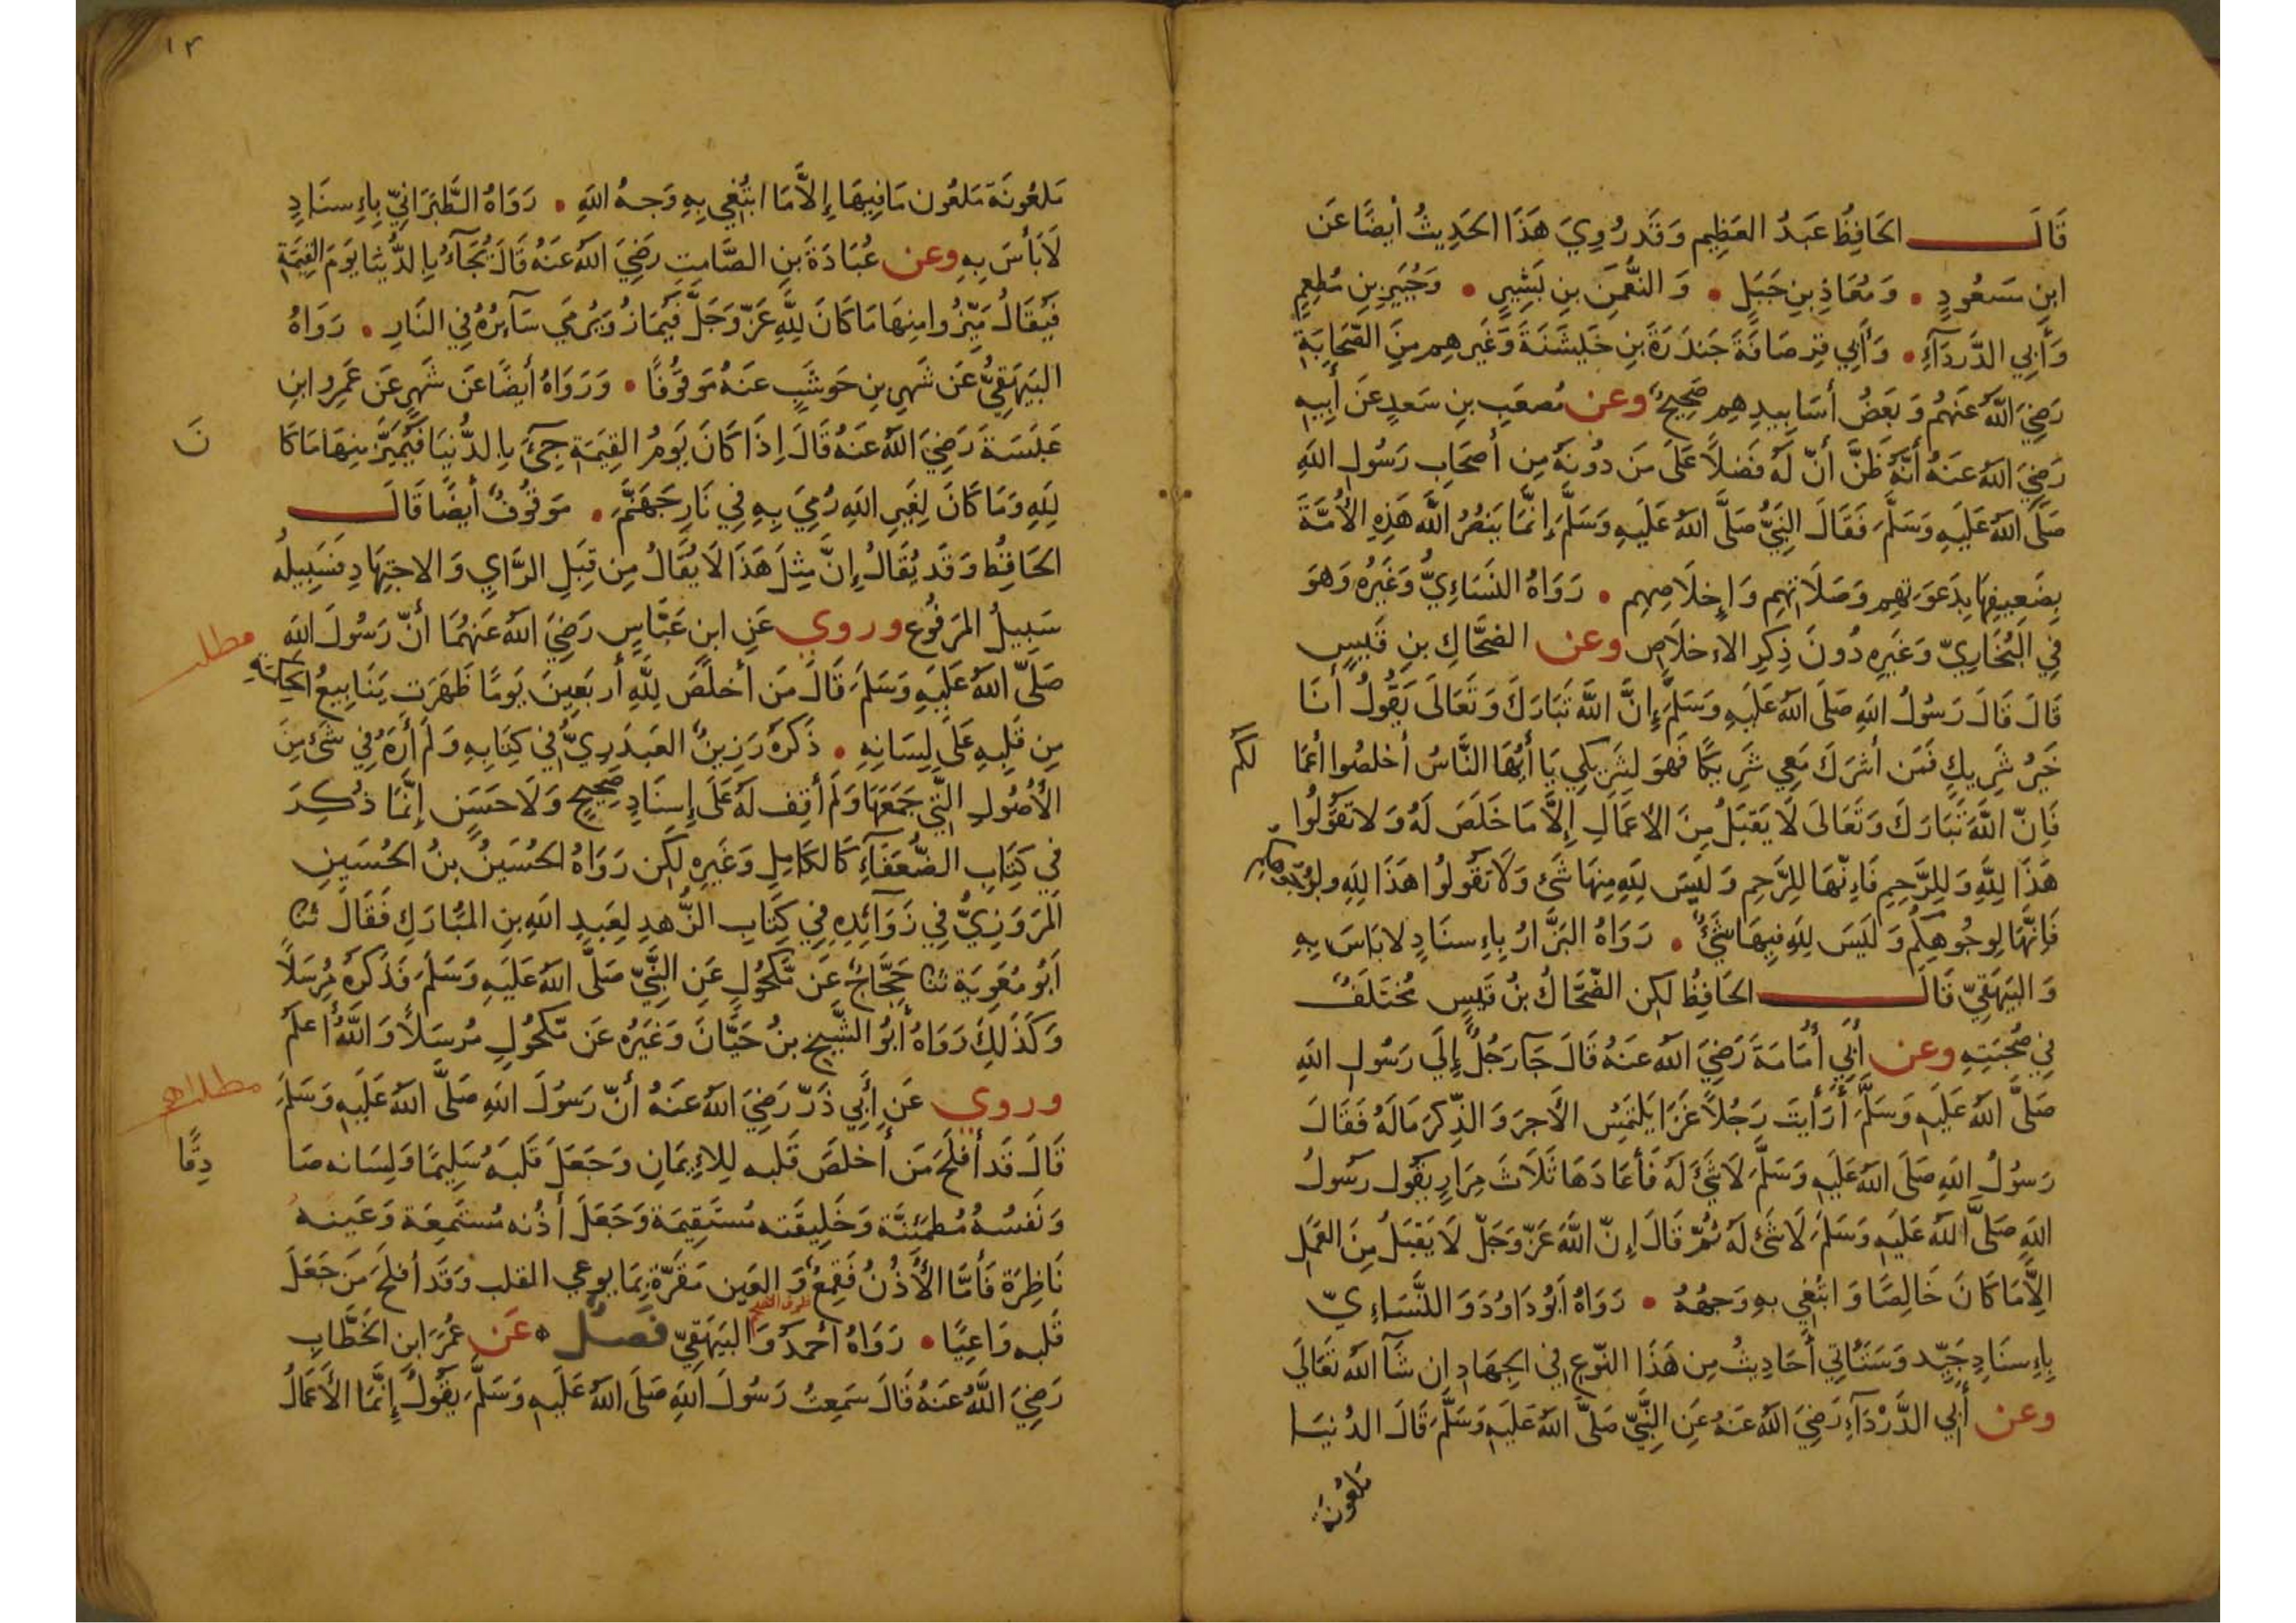 قَالَ الحَافِظُ عَبدُ العَظِيمِ وَقَد رُوِيَ هَذَا الحَدِيثُ أيضًا عَن
ابنِ مَسعُودٍ . وَمُعَاذِ بنِ جَبَلٍ . وَالنُّعمَنَ بنِ بَشِيرٍ . وَجُبَيرِ بنِ مُطعِمٍ
وَأَبِي الدَّردَآءِ . وَأَبِي قِرصَافَةَ جَندَرَةَ بنِ خَيشَنَةَ وَغَيرِهِم مِنَ الصَّحَابَةِ
رَضِيَ اللَّهُ عَنهُم وَبَعَضُ أسَانِيدِهِم صَحِيحٌ وعن مُصعَبِ بنِ سَعدٍ عَن أَبِيهِ
رَضِيَ اللهُ عَنهُ أَنَّهُ ظَنَّ أَنَّ لَهُ فَضلاً عَلَى مَن دُونَهُ مِن أَصحَابِ رَسُولِ اللهِ
صَلَّى اللهُ عَلَيهِ وَسَلَّمَ فَقَالَ النَبِيُّ صَلَّى اللهُ عَلَيهِ وَسَلَّمَ إِنَّمَا يَنصُرُ اللَّه هَذِهِ الأُمَّةَ
بِضَعِيفِهَا بِدَعوَتِهِم وَصَلَاتِهِم وَإِخلَاصِهِم . رَوَاهُ النَسَاءِيُّ وَغَيرُه وَهوَ
فِي البُخَارِيّ وَغَيرِهِ دُونَ ذِكرِ الاِخلَاصِ وعن الضَحَّاكِ بنِ قَيسٍ
قَالَ قَالَ رَسُولُ اللهِ صَلَى اللهُ عَلَيهِ وَسَلَّمَ إِنَّ اللَّهَ تَبَارَكَ وَتَعَالَى يَقُولُ أَنَا
خَيرُ شَرِيكٍ فَمَن أَشرَكَ مَعِي شَرِيكًا فَهوَ لِشَرِيكِي يَا أَيُّهَا النَّاسُ أَخلِصُوا أَعمَا
لَكُم
فَاِنَّ اللَّهَ تَبَارَكَ وَتَعَالَى لَا يَقبَلُ مِنَ الأَعمَالِ إِلَّا مَا خَلَصَ لَهُ وَلَا تَقُولُوا
هَذَا لِلَّهِ وَلِلرَّحِمِ فَإِنَّهَا لِلرَّحِمِ وَلَيسَ لِلَّهِ مِنهَا شَئ وَلَا تَقُولُوا هَذَا لِلَّهِ ولوُجُوهِكُم
فَإِنَّهَا لِوجُوهِكُم وَلَيسَ لِلَّهِ فِيهَا شَئٌ . رَوَاهُ البَزَّارُ بِإِسنَادٍ لابَاسَ بِهِ
وَالبَيهَقِيّ قَالَ الحَافِظُ لَكِن الضَّحَّاكُ بنُ قَيسٍ مُختَلَفٌ
فِي صُحبَتِهِ وعن أَبِي أُمَامَةَ رَضِيَ اللهُ عَنهُ قَالَ جَآ رَجُلٌ إِلَى رَسُولِ اللهِ
صَلَّى اللهُ عَلَيهِ وَسَلَّمَ أَرَأَيتَ رَجُلاً غَزَا يَلتَمِسُ الأَجرَ وَالذِّكرَ مَالَهُ فَقَالَ
رَسُولُ اللهِ صَلَى اللهُ عَلَيهِ وَسَلَّمَ لَا شَئَ لَهُ فَأَعَادَهَا ثَلَاثَ مِرَارٍ يَقُول رَسُولُ
اللهِ صَلَّى اللهُ عَلَيهِ وَسَلَّمَ لَا شَئَ لَهُ ثُمَّ قَالَ إِنَّ اللَّهَ عَزَّ وَجَلّ لَا يَقبَلُ مِنَ العَمَلِ
اِلَّا مَا كَانَ خَالِصًا وَابتُغِي بِهِ وَجهُهُ . رَوَاهُ أَبُو دَاوُدَ وَالنَّسَاءِيّ
بِإِسنَادٍ جَيِّد وَسَتَأتِي أَحَادِيثُ مِن هَذَا النَّوعِ فِي الجِهَادِ ان شَآ اللهُ تَعَالَى
وعن أَبِي الدَّرْدَآءِ رَضِيَ اللهُ عَنهُ عَنِ النَّبِيّ صَلَّى اللهُ عَلَيهِ وَسَلَّمَ قَالَ الدُنيَا
مَلعُونَة
١٣
مَلعُونَة مَلعُون مَا فِيهَا إِلاَّ مَا ابتُغِي بِهِ وَجهُ اللهِ . رَوَاهُ الطَّبَرَانِيّ بِإِسنَادٍ
لَا بَأسَ بِهِ وعن عُبَادَةَ بنِ الصَّامِتِ رَضِيَ اللهُ عَنهُ قَالَ يُجَآءُ بِالدُّنيَا يَومَ القِيمَةِ
فَيُقَالُ مَيِّزُوا مِنهَا مَا كَانَ لِلَّهِ عَزَّ وَجَلَّ فَيُمَازُ وَيُرمَي سَآئِرُهُ فِي النَارِ . رَوَاهُ
البَيهَقِيُّ عَن شَهرِ بنِ حَوشَبٍ عَنهُ مَوقُوفًا . وَرَوَاهُ أَيضًا عَن شَهرٍ عَن عَمرِو ابنِ
عَبَسَةَ رَضِيَ اللهُ عَنهُ قَالَ اِذَا كَانَ يَومُ القِيَمَةِ جِئَ بِالدُّنيَا فَيُمَيَّزُ مِنهَا مَا كَا
نَ
لِلَّهِ وَمَا كَانَ لِغَيرِ اللهِ رُمِيَ بِهِ فِي نَارِ جَهَنَّمَ . مَوقُوفٌ أَيضًا قَالَ
الحَافِظُ وَقَد يُقَالُ إِنَّ مِثلَ هَذَا لَا يُقَالُ مِن قِبَلِ الرَّايِ وَالاِجتِهَادِ فَسَبِيلُهُ
سَبِيلُ المَرفُوع وروي عَنِ ابنِ عَبَّاسٍ رَضِيَ اللهُ عَنهُمَا أَنَّ رَسُولَ اللهِ
مطلب
صَلَّى اللهُ عَلَيهِ وَسَلَّمَ قَالَ مَن أَخلَصَ لِلَّهِ أَربَعِينَ يَومًا ظَهَرَت يَنَابِيعُ الحِكمَةِ
مِن قَلبِهِ عَلَى لِسَانِهِ . ذَكَرَهُ رَزِينُ العَبدَرِيُّ فِي كِتَابِهِ وَلَم أَرَهُ فِي شَئ مِنَ
الأُصُولِ الَّتِي جَمَعَهَا وَلَم أَقِف لَهُ عَلَى إِسنَادٍ صَحِيحٍ وَلَا حَسَنٍ إِنَّمَا ذُكِرَ
فِي كِتَابِ الضُّعَفَآءِ كَالكَامِلِ وَغَيرِهِ لَكِن رَوَاهُ الحُسَينُ بنُ الحُسَينِ
المَروَزِيُّ فِي زَوَآئِدِهِ فِي كِتَابِ الزُّهدِ لِعَبدِ اللهِ بنِ المُبَارَكِ فَقَالَ ثنا
أَبُو مُعَوِيَة ثنا حَجَّاجٌ عَن مَكحُولٍ عَنِ النَّبِيّ صَلَّى اللهُ عَلَيهِ وَسَلَّمَ فَذَكَرَهُ مُرسَلاً
وَكَذَلِكَ رَوَاهُ أَبُو الشَّيخِ بنُ حَيَّانَ وَغَيرُه عَن مَكحُولٍ مُرسَلاً وَاللَّهُ أَعلَم
وروي عَنِ أَبِي ذَرّ رَضِيَ اللهُ عَنهُ أَنَّ رَسُولَ اللهِ صَلَّى اللهُ عَلَيهِ وَسَلَّمَ
قَالَ قَد أَفلَحَ مَن أَخلَصَ قَلبه لِلاِيمَانِ وَجَعَلَ قَلبَهُ سَلِيمًا وَلِسَانه صَا
دِقًا
وَنَفسُهُ مُطمَئِنَّة وَخَلِيقَته مُستَقِيمَة وَجَعَلَ أُذُنه مُستَمِعَة وَعَينه
نَاظِرَة فَأَمَّا الأُذُنُ فَقِمعٌ وَالعَين مُقَرَّة بِمَا يوعي القلب وَقَد أَفلَحَ مَن جَعَلَ
قَلبه وَاعِيًا . رَوَاهُ أَحمَدُ وَالبَيهَقِيّ فَصلٌ عَن عُمَرَ ابنِ الخَطَّابِ
رَضِيَ اللَّهُ عَنهُ قَالَ سَمِعتُ رَسُولَ اللهِ صَلَى اللهُ عَلَيهِ وَسَلَّمَ يَقُولُ إِنَّمَا الأَعمَالُ